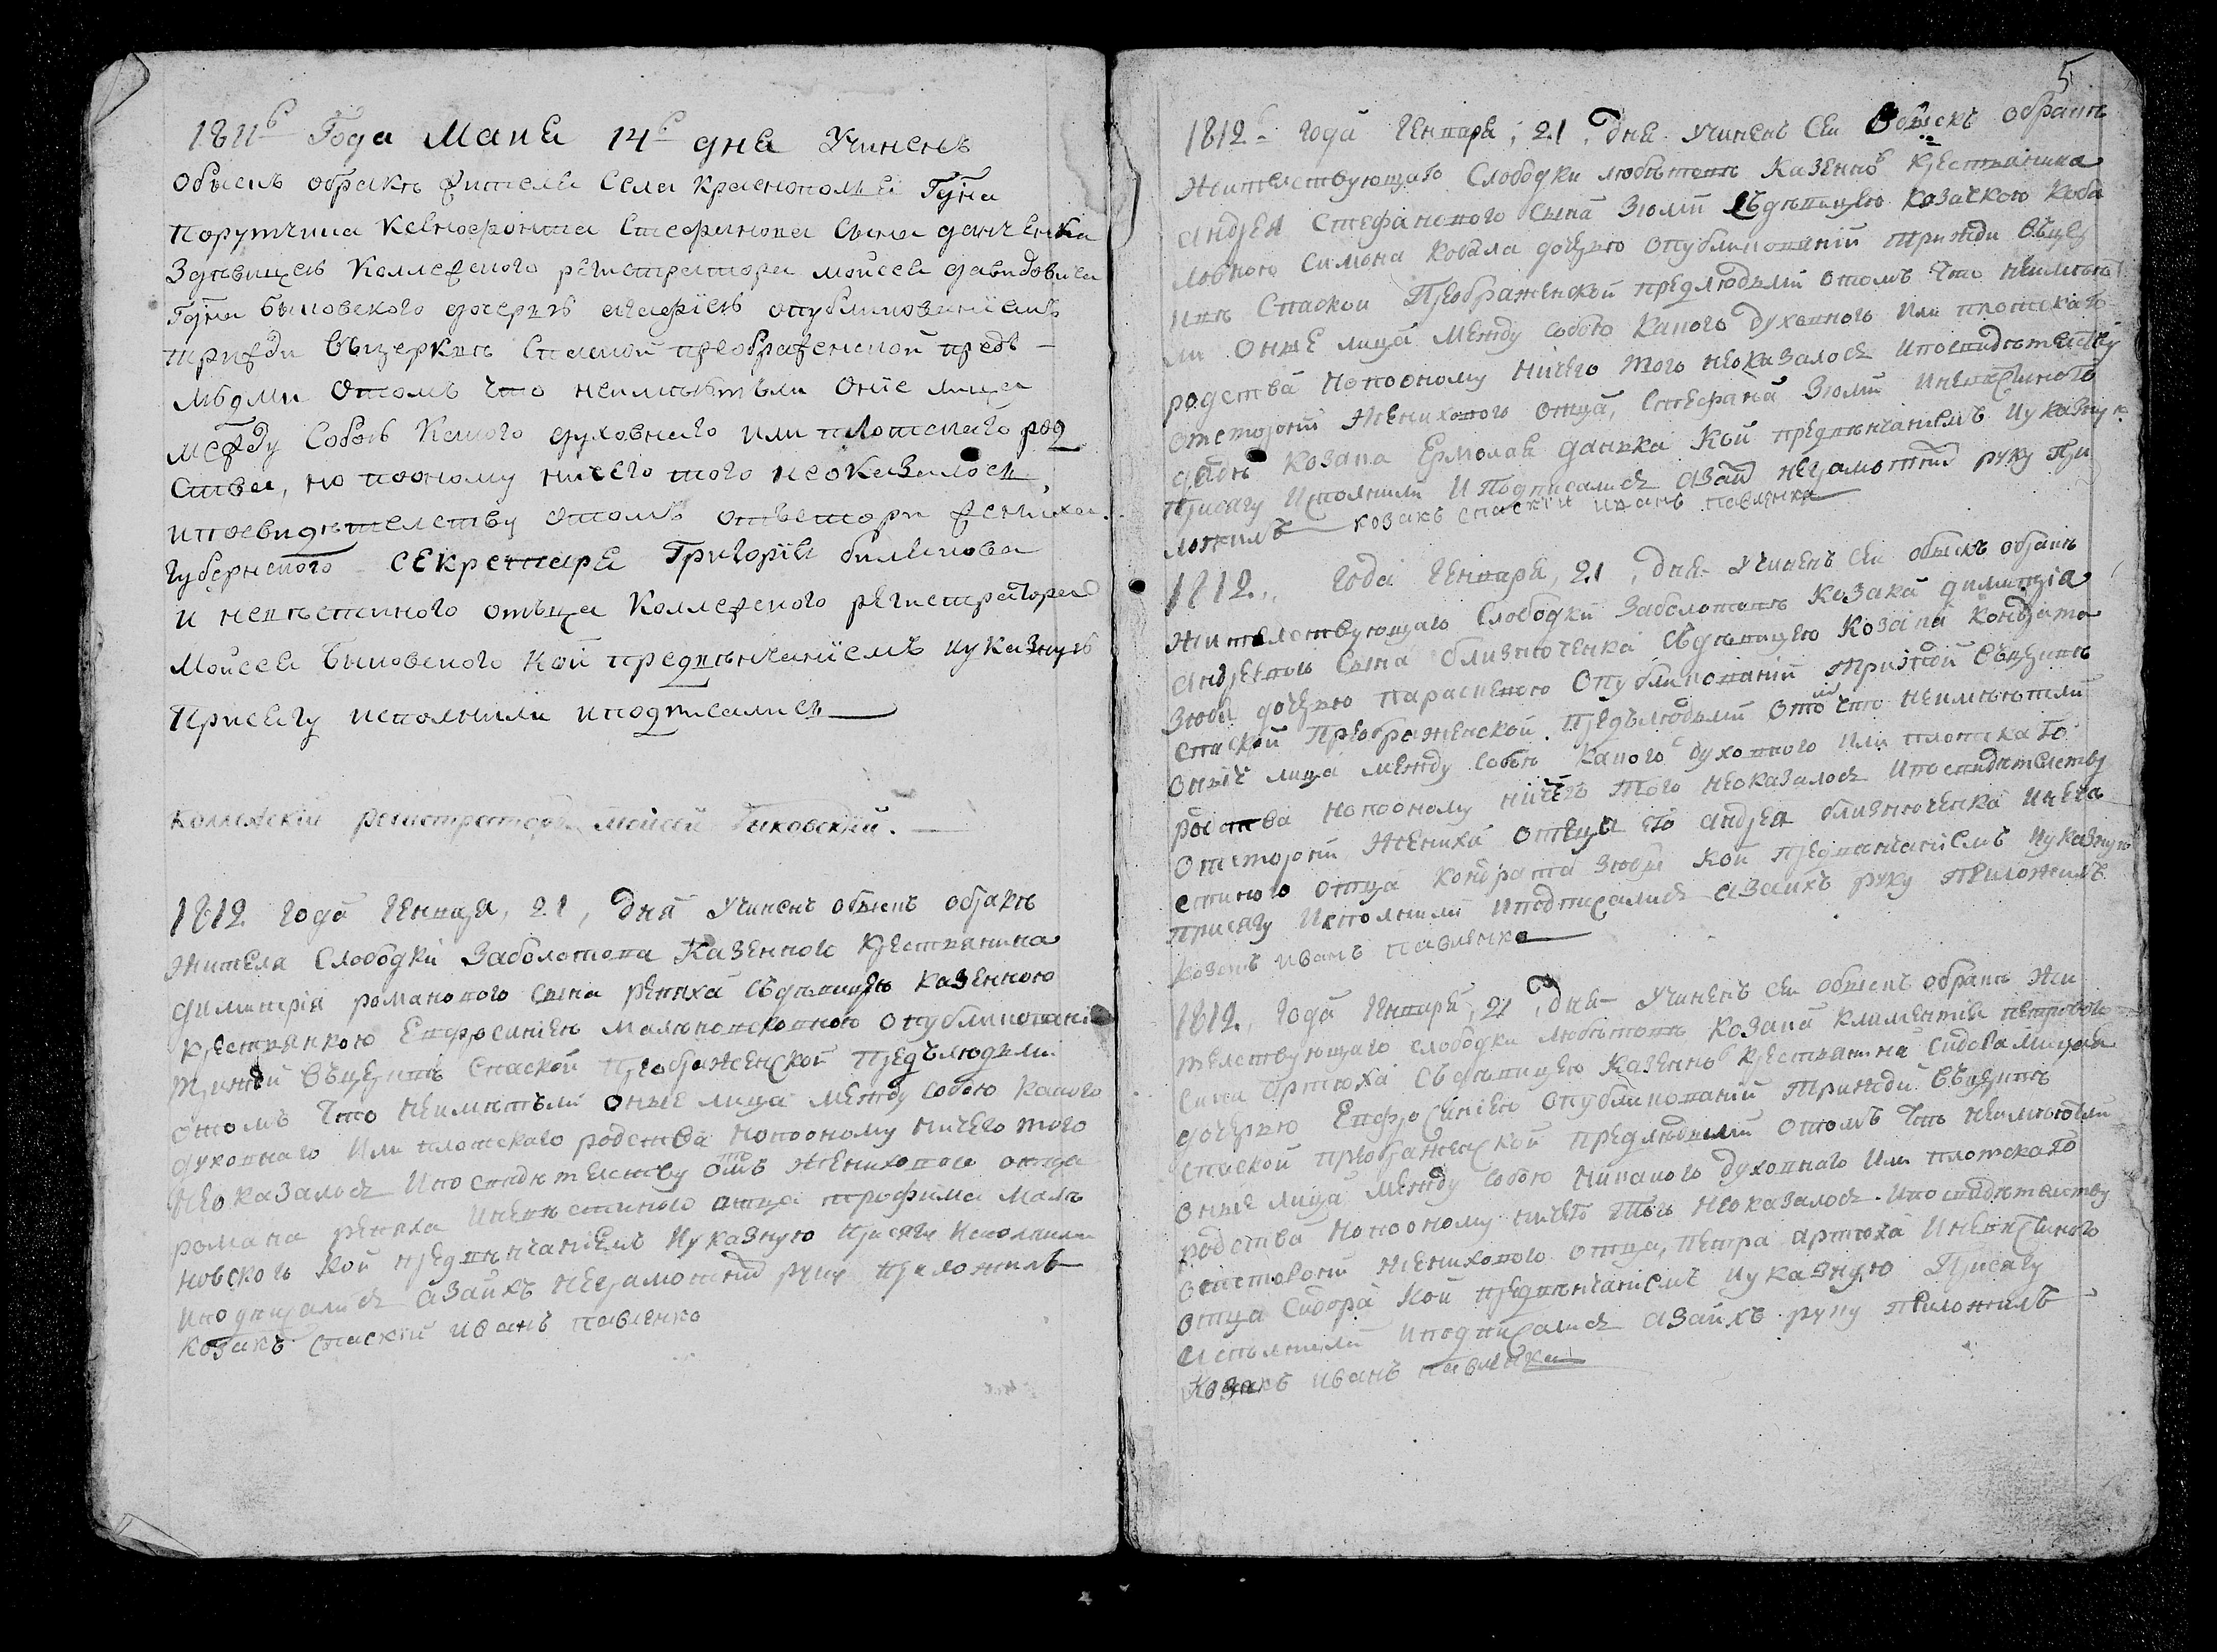 1811го Года Маия 14го дня Учиненъ
обыскъ обракѣ жителя села Краснополья Гдна
порутчика Ксенофонта Стефанова сына данченка
Здѣвицею Коллежского регистратора мойсея давидовича
Гдна быковского дочерю опубликованіемъ
трижди въцеркви Спаской преображенской предъ
людми отомъ что неимѣютъли оніе лица
между Собою Какого духовнаго или плотскаго род
ства, но пооному ничего того неоказалося,
ипосвидѣтелству отомъ
губернского секретара Григорія
и невѣстиного отъца Коллежского регистратора
Мойсея быковского Кой предвѣнчаніемъ иуказную
присягу исполнили иподписалися
Коллежскій регистраторъ Мойсей Быковскій.
1812 года Генваря, 21, дня Учиненъ обыскъ обракѣ
жителя Слободки Заболотова Казенного крестянина
димитрія романового сына рѣпяха Сѣдѣвицею казенною
крестянкою Евфросиніею опубликованіе
трижди въцерквѣ Спаской Преображенской Предълюдми
отомъ что неимѣютъли оные лица между собою какого
духовнаго Или плотскаго родства нопооному ничего того
неоказалося Ипосвидѣтелству женихового отца
романа рѣпяха Иневѣстиного отца трофима Мали
новского Кой предвѣнчаніемъ Иуказную присягу Исполнили
Иподписалися аЗаихъ неграмотній руку приложилъ
козакъ спаскій иванъ павленко
5
1812го года Генваря, 21, дня Учиненъ Сей Обыскъ обракѣ
Жителствующаго Слободки любѣтовѣ Казенного крестянина
андрея Стефанового сына Зюмы Сдѣвицею козачкою Коба
ловною Симона Кобала дочерю опубликованій трижди въцер
квѣ Спаской Преображенской предлюдьми отомъ что неимѣют
ли оные лица между собою какого духовного или плотскаго
родства нопооному ничего того неоказалося Ипосвидѣтелству
отсторони Женихового отца, Стефана Зюми Иневѣстиного
козака Ермолая Кой предвѣнчаніемъ Иуказну
присягу Исполнили И Подписалися аЗаихъ неграмотній руку При
ложилъ козакъ спаскій иванъ павленка
1812., года Генваря, 21, дня Учиненъ Сей обыскъ обракѣ
Жителствующаго Слободки Заболотовѣ Козака димитріа
андреевого Сына близнюченка Сѣдѣвицею Козака Кондрата
Зюбы дочерю Параскевою опубликованій трижди въцерквѣ
спаской Преображенской Предълюдьми отомъ что неимѣютли
оныіе лица между собою какого духовного или плотскаго
родства нопооному ничего того неоказалося Ипосвидѣтелству
отсторони Жениха отца его андрея близнюченка Иневѣ
стиного отца Кондрата Зюбы Кой предвѣнчаніемъ Иуказную
присягу Исполнили Иподписалися аЗаихъ руку приложилъ
козакъ иванъ павленка
1812., года Генваря, 21, дня Учиненъ Сей обыскъ обракѣ Жи
телствующаго слободки любѣтовѣ Козака Климентія петровог
сина артюха Сѣдѣвицею Казенного крестянина Сидора
дочерю Евфросиніею опубликованій Трижди въцерквѣ
спаской преображенской предлюдьми отомъ что неимѣютли
оные лица между собою никакого духовнаго Или плотскаго
родства нопооному ничего того неоказалося Ипосвидѣтелству
отсторони женихового отца, петра артюха Иневѣстиного
отца Сидора Кой предвѣнчаніемъ Иуказную Присягу
исполнили Иподписалися аЗаихъ руку приложилъ
Козакъ иванъ павленка